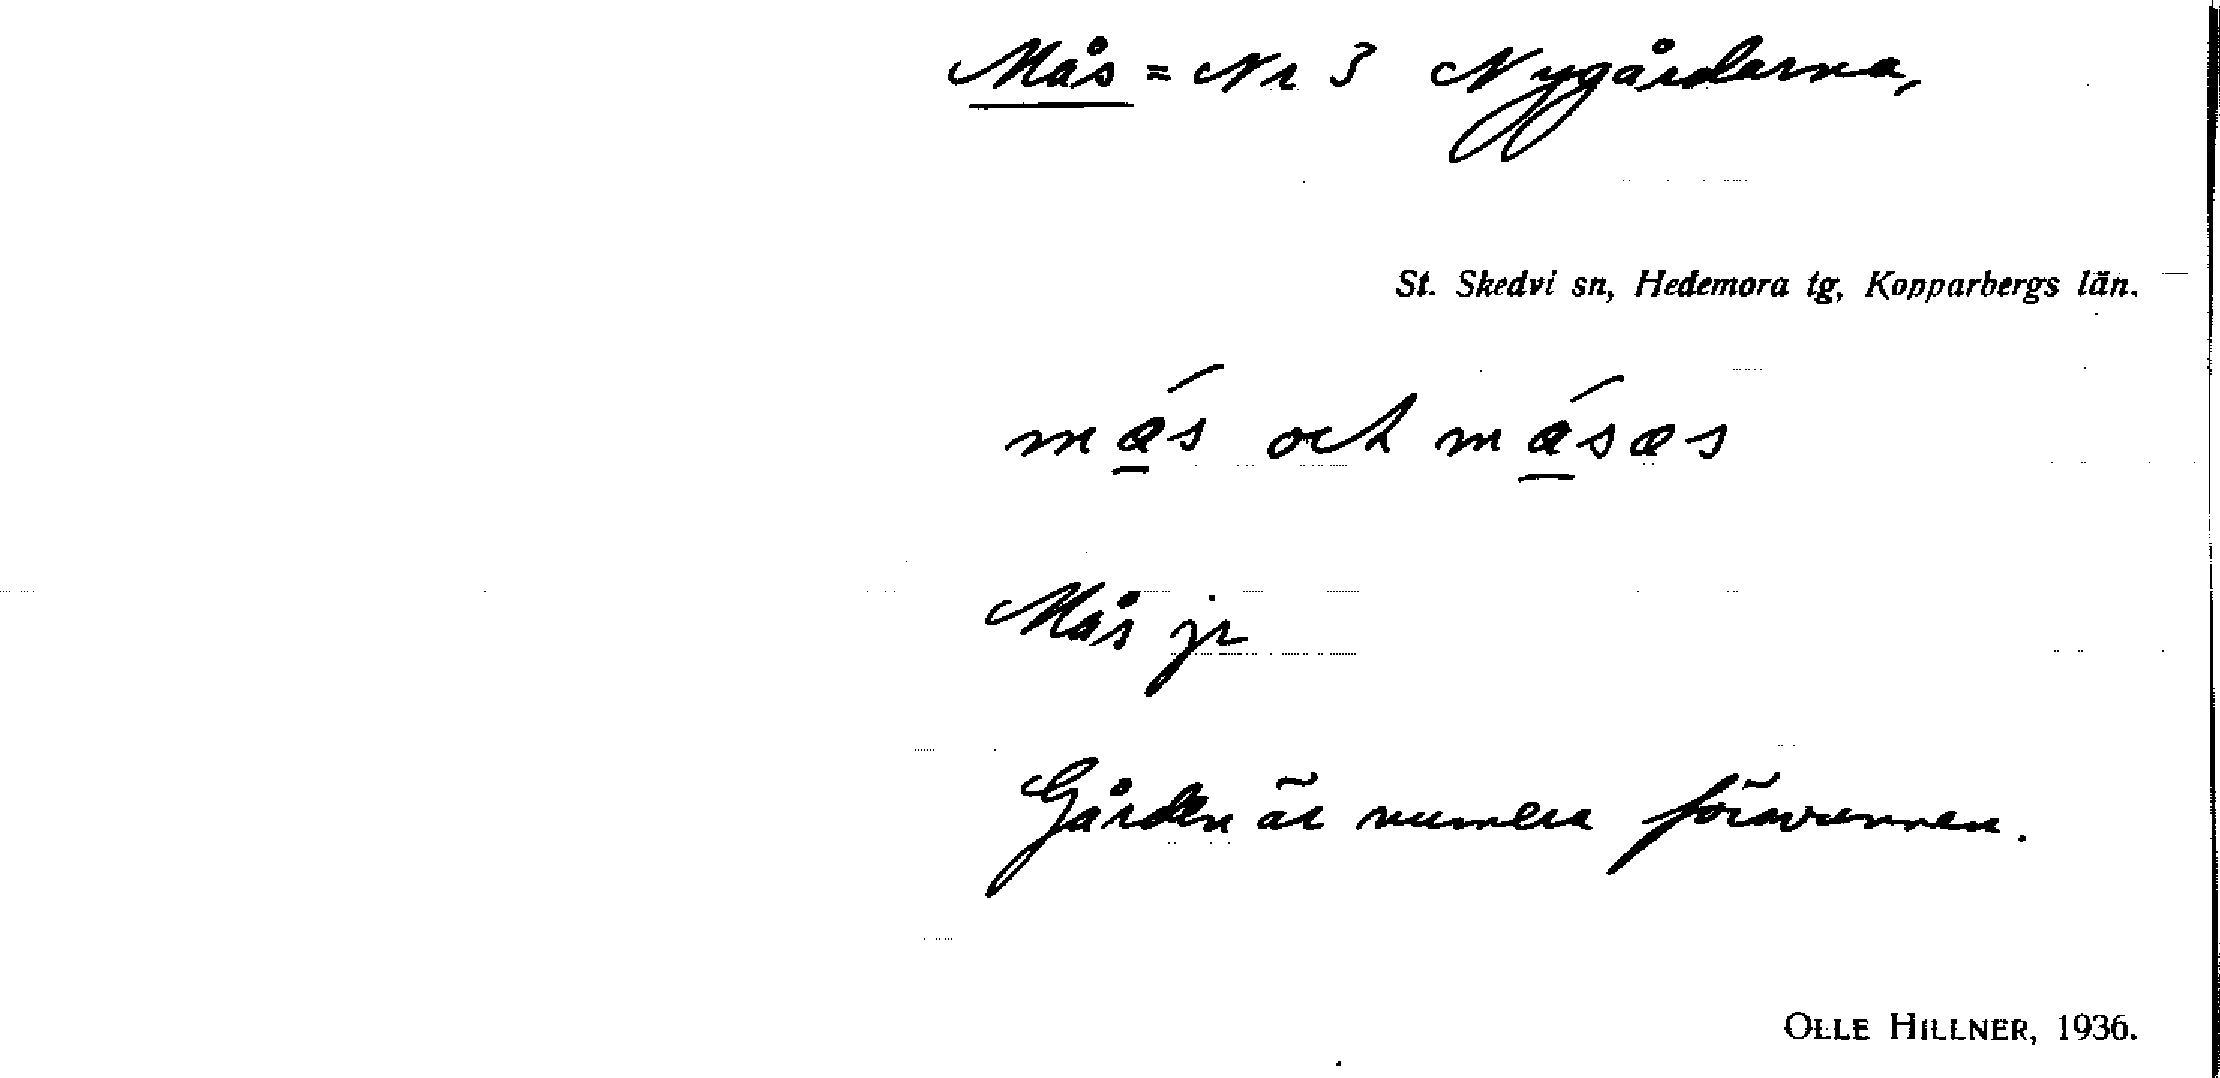 Mås = Nr 3 Nygårdarna,
St. Skedvi sn, Hedemora tg, Kopparbergs län.
och
Mås jr
Gården är numera försvunnen.
OLLE HILLNER, 1936.